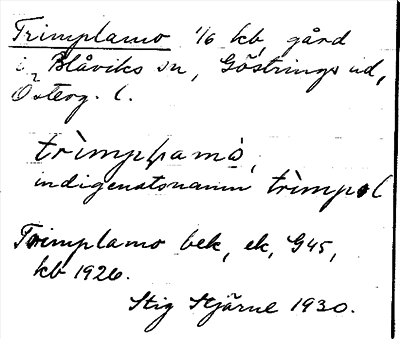 Trimplamo 1/6 kb, gård
i Blåviks sn, Göstrings hd,
Österg. l.
trìmplamò,
indigenatsnamn trìmpol
Trimplamo bek, ek, G45,
kb 1926.
Stig Stjärne 1930.